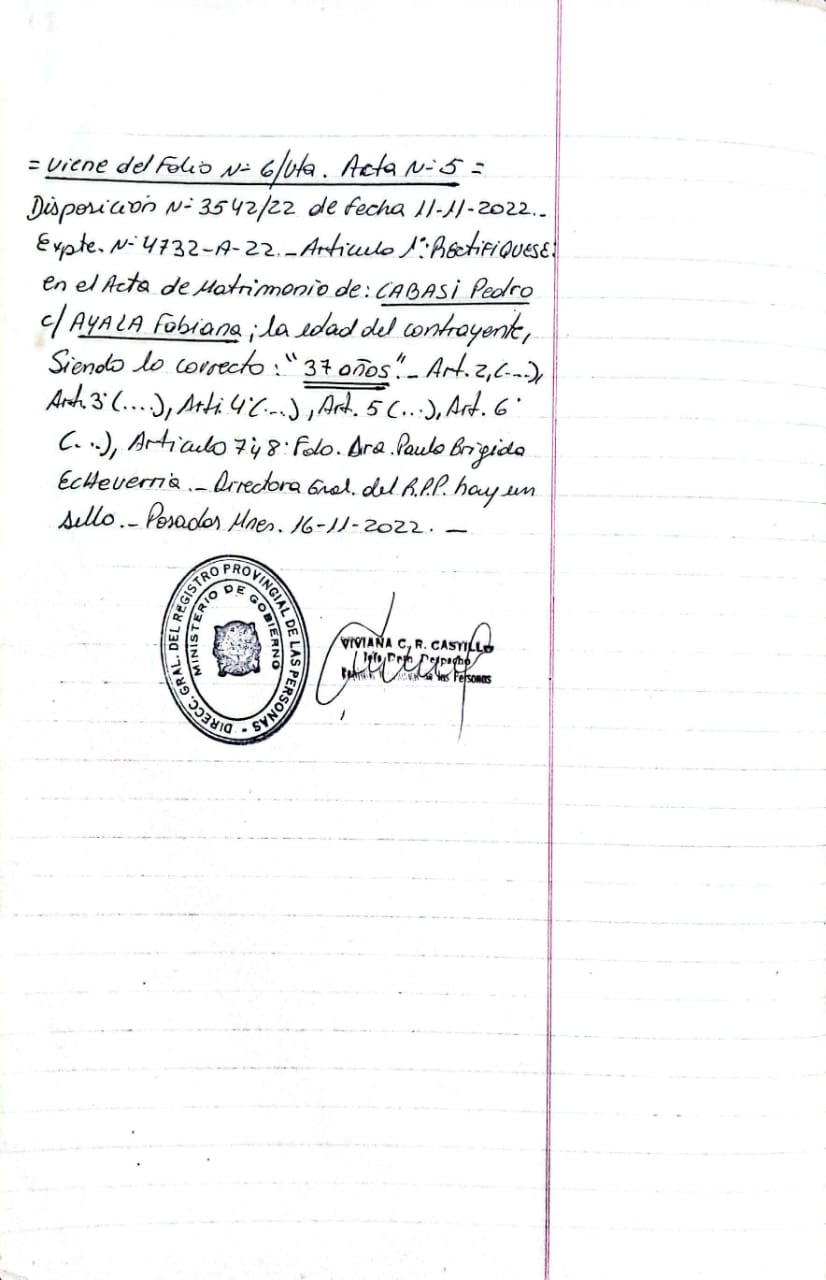 = Viene del Folio Nº 6/Vta. Acta Nº 5 =
Disposición Nº 3542/22 de fecha 11-11-2022.-
Expte. Nº 4732-A-22.- Articulo 1º: RECTIFIQUESE:
en el Acta de Matrimonio de: CABASI Pedro
c/ AYALA Fabiana; la edad del contrayente,
Siendo lo correcto: "37 años".- Art. 2, (...),
Art. 3º (....), Arti. 4º (...), Art. 5 (...), Art. 6º
(...), Articulo 7 y 8: Fdo. Dra. Paula Brigida
Echeverria.- Directora Gral. del R.P.P. hay un
sello.- Posadas Mnes. 16-11-2022. —
DIRECC. GRAL. DEL REGISTRO PROVINCIAL DE LAS PERSONAS -
MINISTERIO DE GOBIERNO
VIVIANA C. R. CASTILLO
Jefe Dpto. Despacho
de las Personas